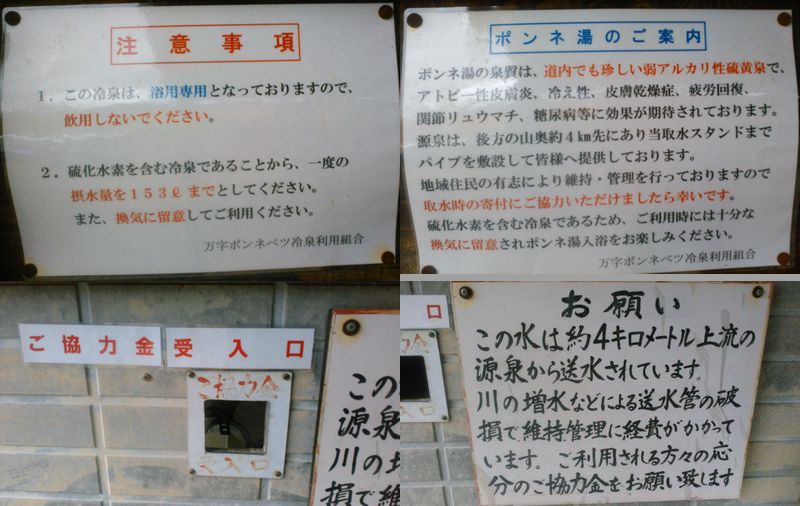 注意事項
1．この冷泉は、浴用専用となっておりますので、
飲用しないでください。
2．硫化水素を含む冷泉であることから、一度の
摂水量を153ℓまでとしてください。
また、換気に留意してご利用ください。
万字ポンネベツ冷泉利用組合
ポンネ湯のご案内
ポンネ湯の泉質は、道内でも珍しい弱アルカリ性硫黄泉で、
アトピー性皮膚炎、冷え性、皮膚乾燥症、疲労回復、
関節リュウマチ、糖尿病等に効果が期待されております。
源泉は、後方の山奥約4km先にあり当取水スタンドまで
パイプを敷設して皆様へ提供しております。
地域住民の有志により維持・管理を行っておりますので
取水時の寄付にご協力いただけましたら幸いです。
硫化水素を含む冷泉であるため、ご利用時には十分な
換気に留意されポンネ湯入浴をお楽しみください。
万字ポンネベツ冷泉利用組合
ご協力金受入口
ご協力金
入口
この
源泉
川の増
損で維
口
お願い
この水は約4キロメートル上流の
源泉から送水されています。
川の増水などによる送水管の破
損で維持管理に経費がかかって
います。ご利用される方々の応
分のご協力金をお願い致します